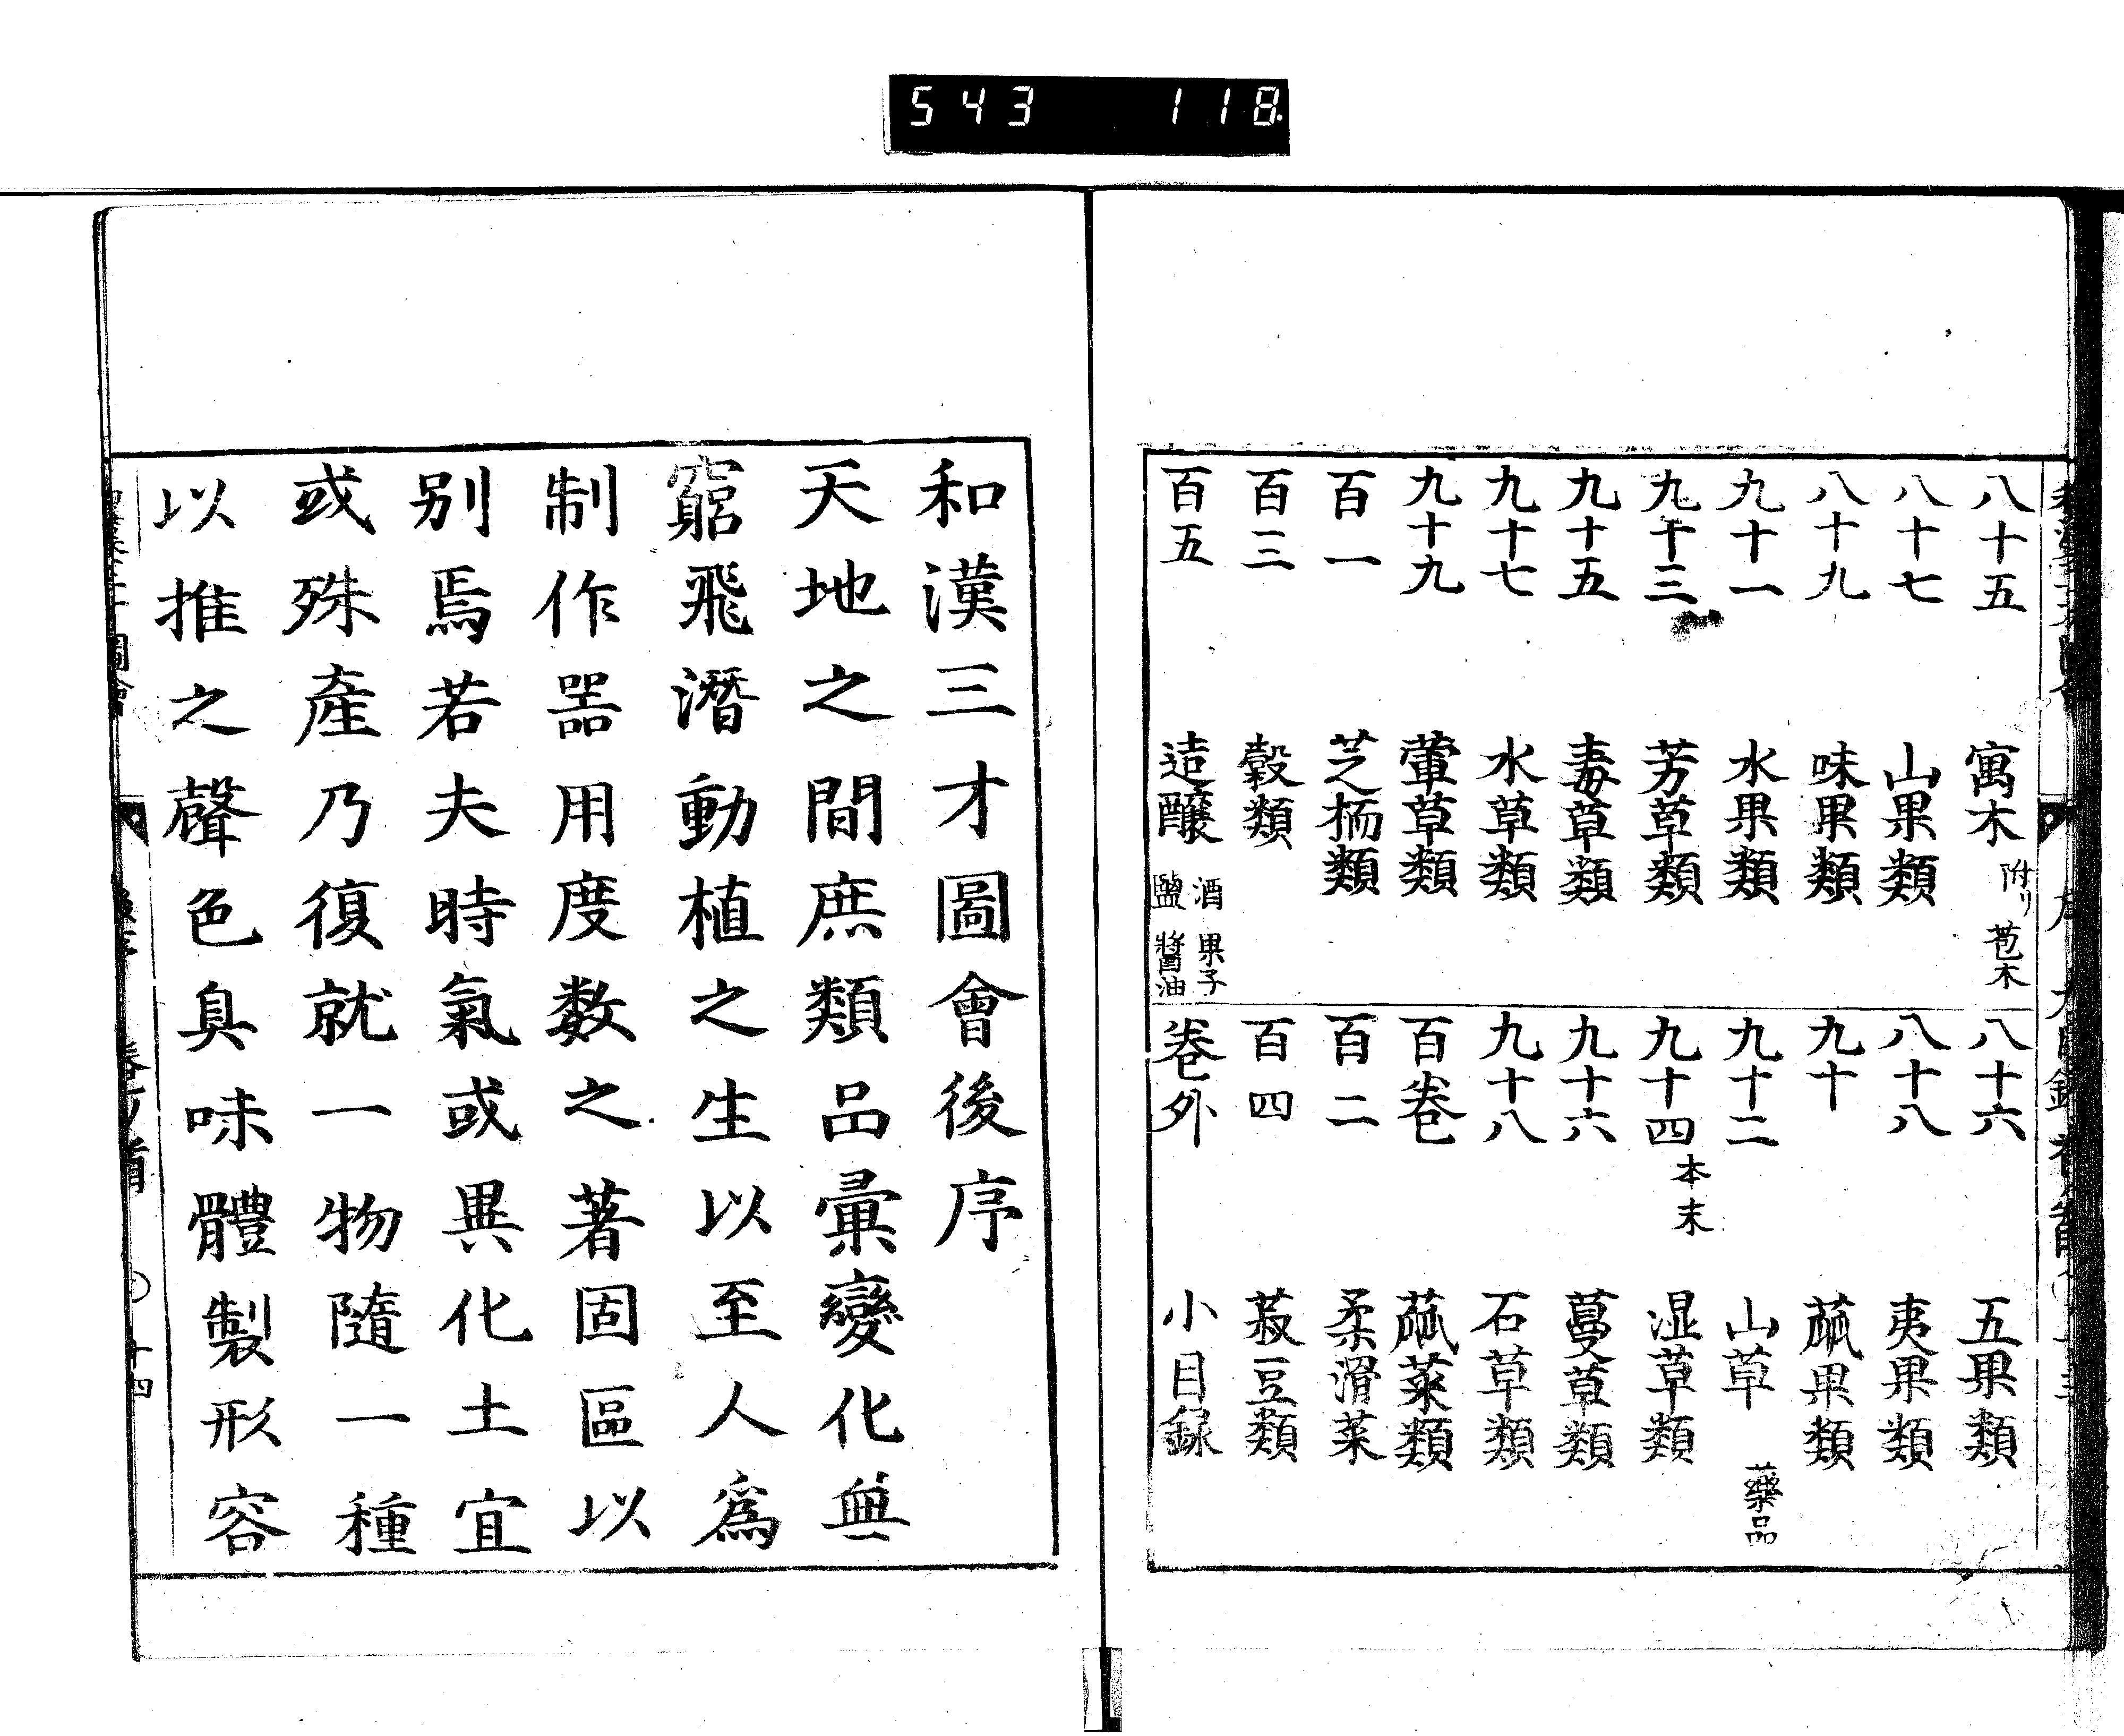 543 118
八十五 寓木 附リ 苞木
八十六 五果類
八十七 山果類
八十八 夷果類
八十九 味果類
九十 蓏果類
九十一 水果類
九十二 山草 藥品
九十三 芳草類
九十四 本末 湿草類
九十五 毒草類
九十六 蔓草類
九十七 水草類
九十八 石草類
九十九 葷草類
百卷 蓏菜類
百一 芝栭類
百二 柔滑菜
百三 穀類
百四 菽豆類
百五 造釀 酒 果子 鹽 醬油
卷外 小目録
和漢三才圖會後序
天地之間庶類品彙變化無
窮飛潛動植之生以至人爲
制作噐用度数之著固區以
别焉若夫時氣或異化土宜
或殊產乃復就一物隨一種
以推之聲色臭味體製形容
十四